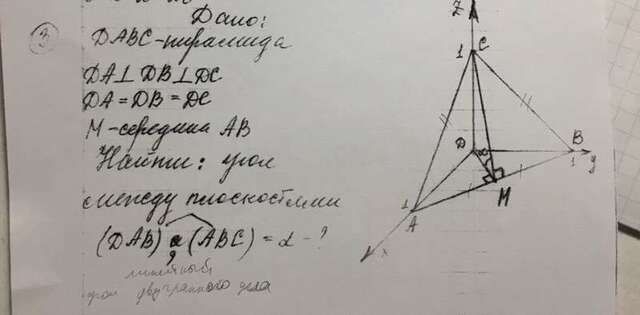 ③
Дано:
DABC-пирамида
DA⊥DB⊥DC
DA=DB=DC
M-середина AB
Найти: угол
между плоскостями
(DAB) и (ABC) = α - ?
линейный
угол двугранного
z
1 C
D
B
1 y
M
1
A
x